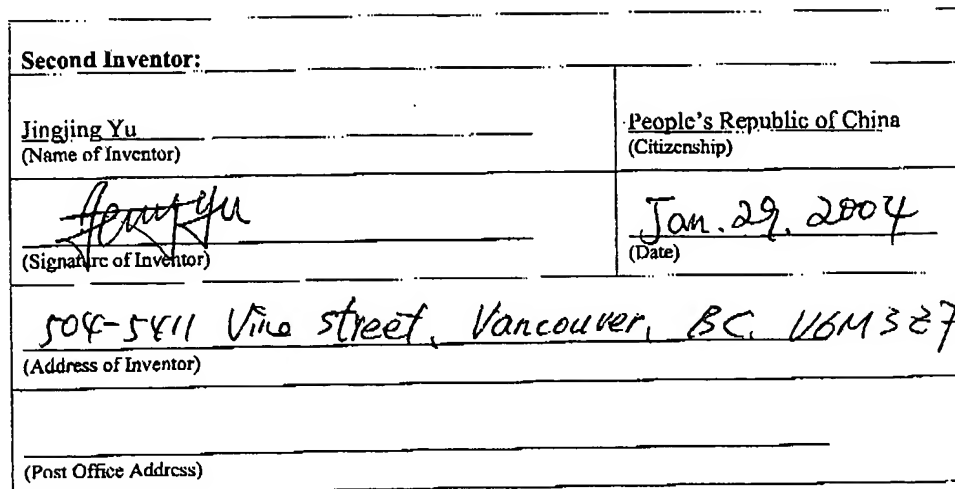 Second Inventor:
Jingjing Yu
(Name of Inventor)
People's Republic of China
(Citizenship)
(Signature of Inventor)
Jan. 29, 2004
(Date)
504-5411 Vine street, Vancouver, BC. V6M 3Z7
(Address of Inventor)
(Post Office Address)